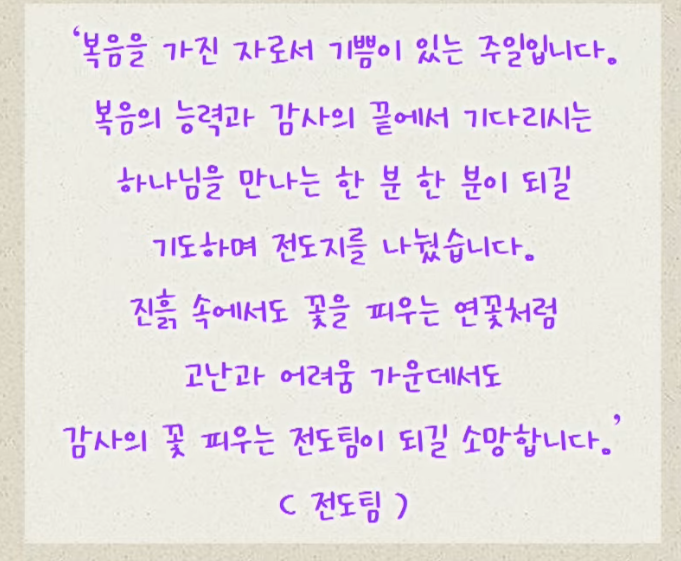 ‘복음을 가진 자로서 기쁨이 있는 주일입니다.
복음의 능력과 감사의 끝에서 기다리시는
하나님을 만나는 한 분 한 분이 되길
기도하며 전도지를 나눴습니다.
진흙 속에서도 꽃을 피우는 연꽃처럼
고난과 어려움 가운데서도
감사의 꽃 피우는 전도팀이 되길 소망합니다.’
( 전도팀 )